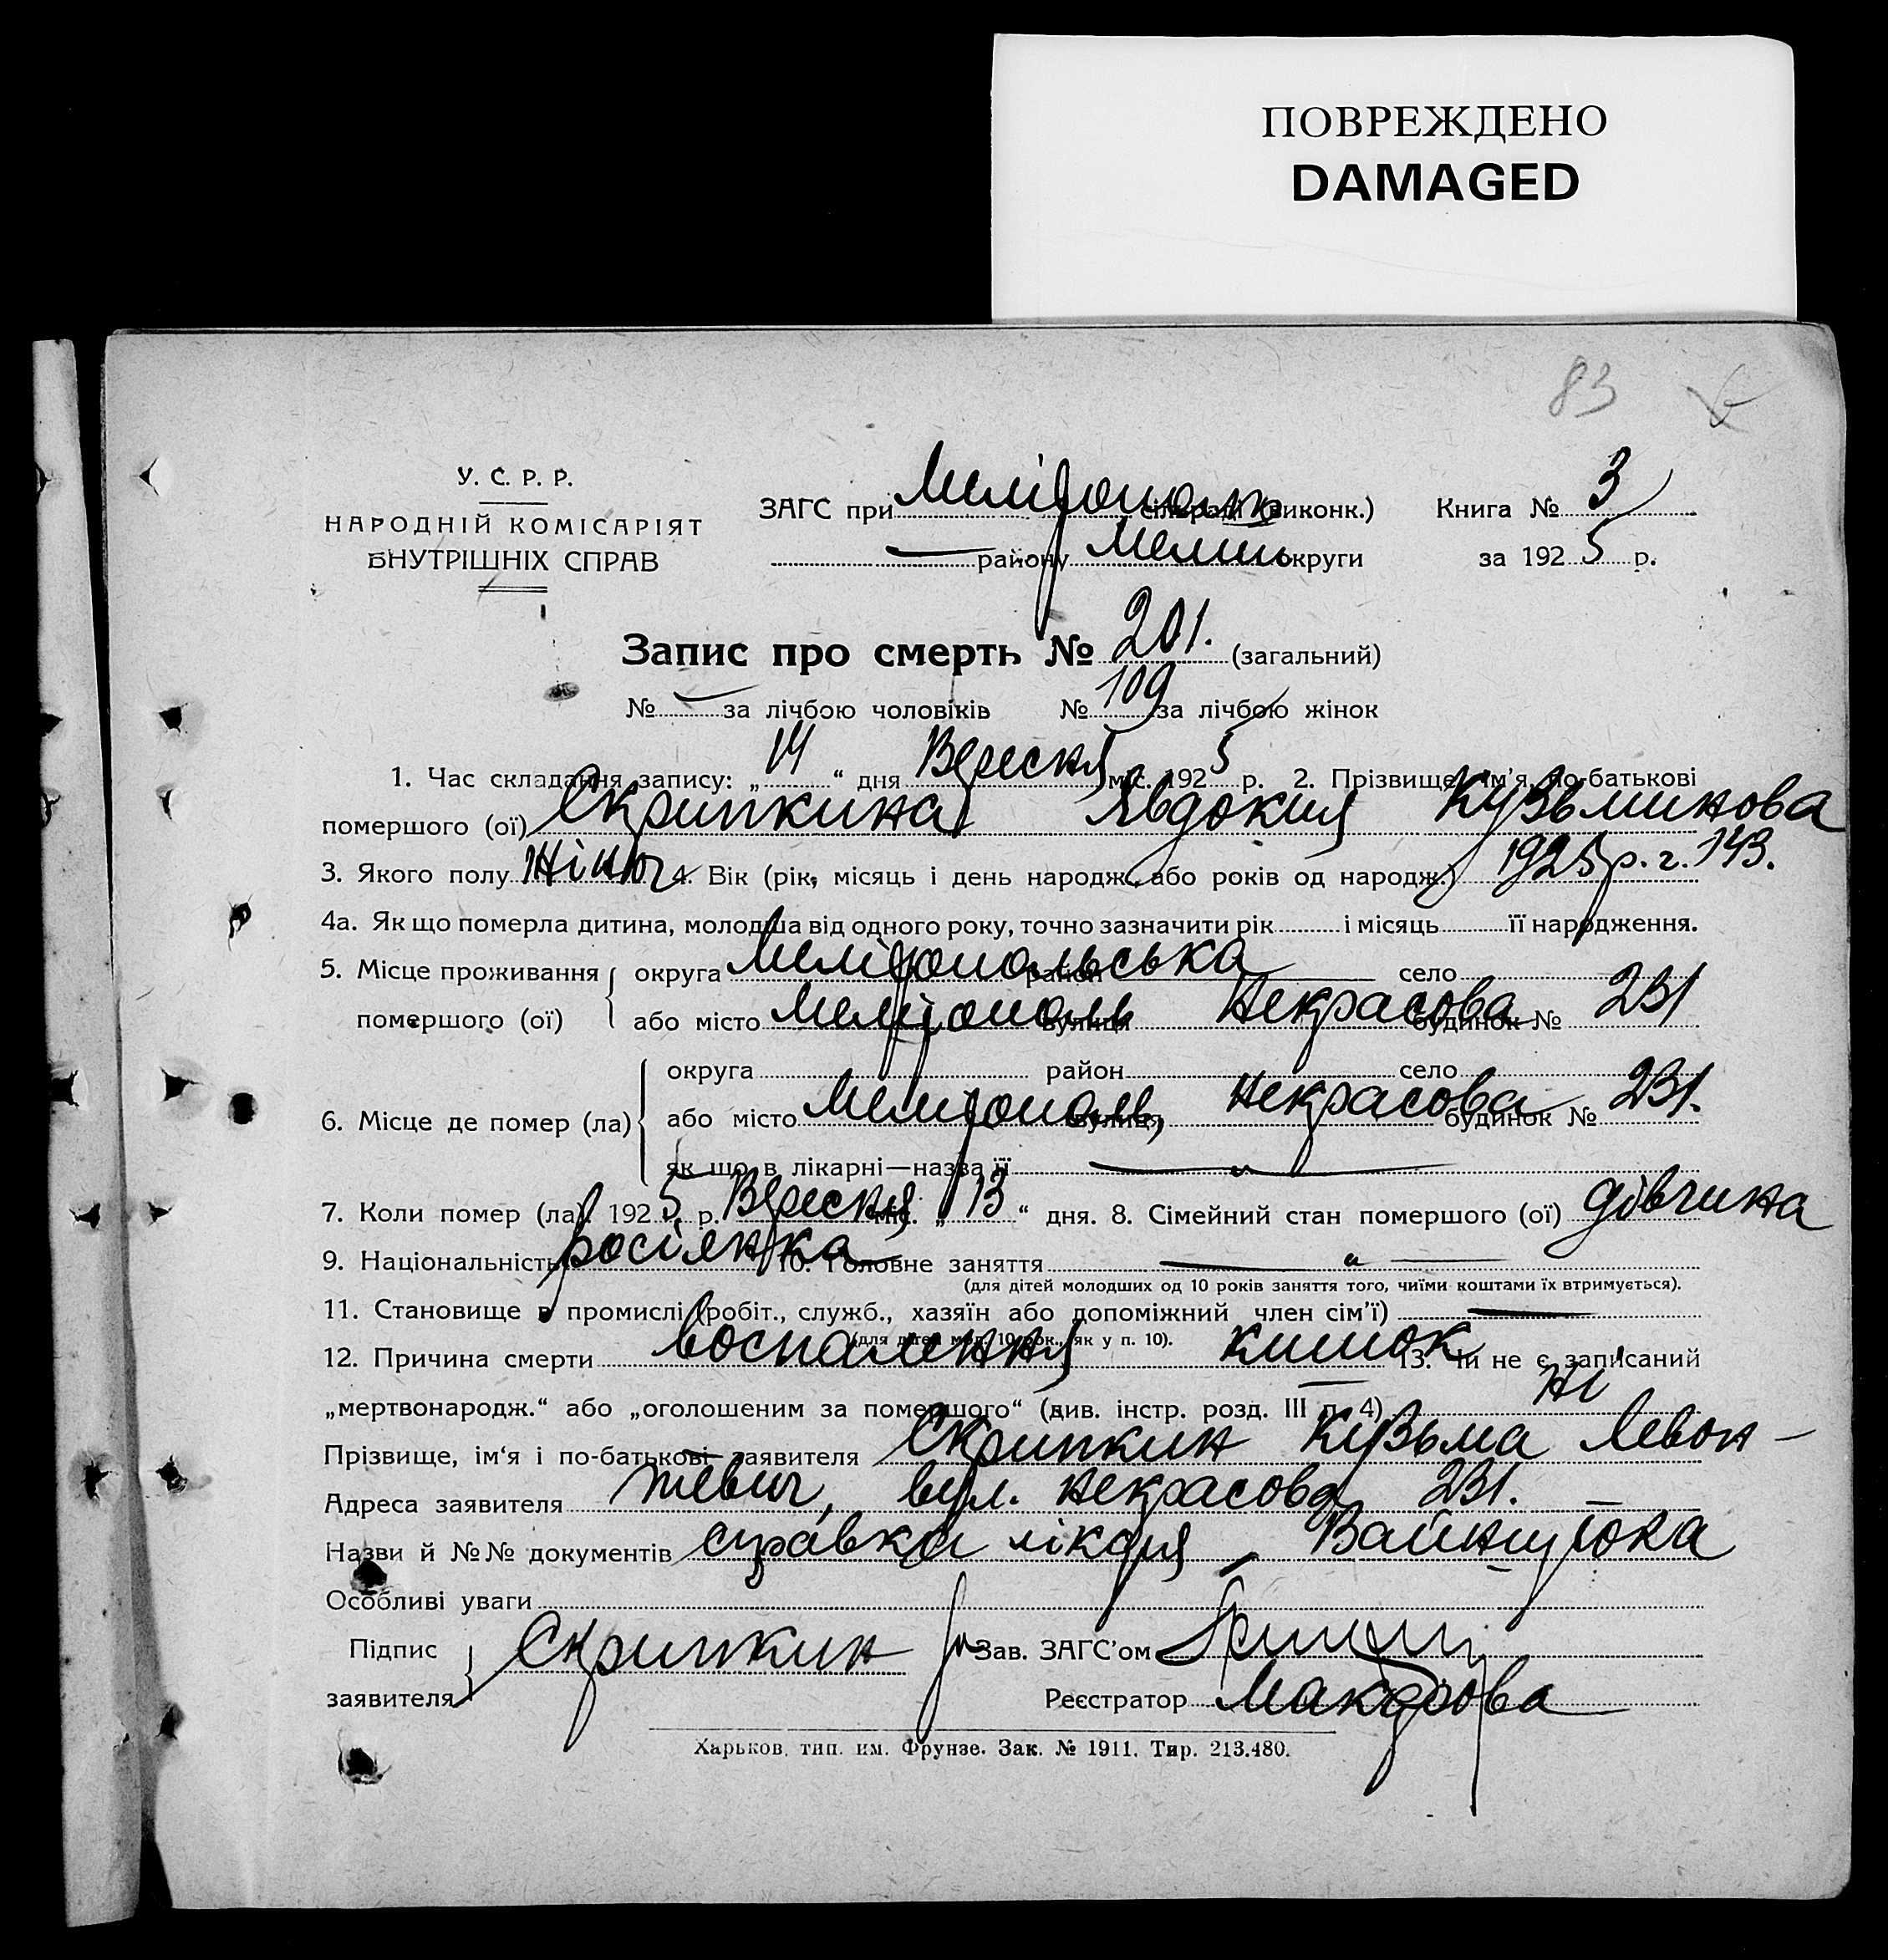 ПОВРЕЖДЕНО
DAMAGED
83
У. С. Р. Р.
НАРОДНІЙ КОМІСАРІЯТ
ВНУТРІШНІХ СПРАВ
ЗАГС при Меліტопольськ сільради (виконк.)
— району Меліт округи
Книга № 3
за 1925 р.
Запис про смерть № 201. (загальний)
№ — за лічбою чоловіків № 109 за лічбою жінок
1. Час складання запису: „14“ дня Вересня міс. 1925 р. 2. Прізвище, ім'я, по-батькові
помершого (ої) Скрипкина Явдокия Кузьминова
3. Якого полу жіноч 4. Вік (рік, місяць і день народж., або років од народж.) 1925 р. 2.
4а. Як що померла дитина, молодша від одного року, точно зазначити рік і місяць її народження.
5. Місце проживання помершого (ої) округа Мелітопольська район — село
або місто Мелітополь вулиця Некрасова будинок № 231
6. Місце де помер (ла) округа район село
або місто Мелітополь, вулиця Некрасова будинок № 231.
як що в лікарні—назва її — „ —
7. Коли помер (ла) 1925 р. Вересня міс. „13“ дня. 8. Сімейний стан помершого (ої) дівчина
9. Національність росіянка 10. Головне заняття — „ —
(для дітей молодших од 10 років заняття того, чиїми коштами їх втримується).
11. Становище в промислі (робіт., служб., хазяїн або допоміжний член сім'ї) —
(для дітей мол. 10 рок., як у п. 10).
12. Причина смерти воспалення кишок 13. Чи не є записаний
„мертвонародж.“ або „оголошеним за помершого“ (див. інстр. розд. III п. 4) Ні
Прізвище, ім'я і по-батькові заявителя Скрипкин Кузьма Левон-
Адреса заявителя тевич, вул. Некрасова 231. —
Назви й №№ документів справка лікаря — Вайнштока
Особливі уваги
Підпис заявителя Скрипкин За Зав. ЗАГС'ом
Реєстратор Макарова
Харьков, тип. им. Фрунзе. Зак. № 1911. Тир. 213.480.